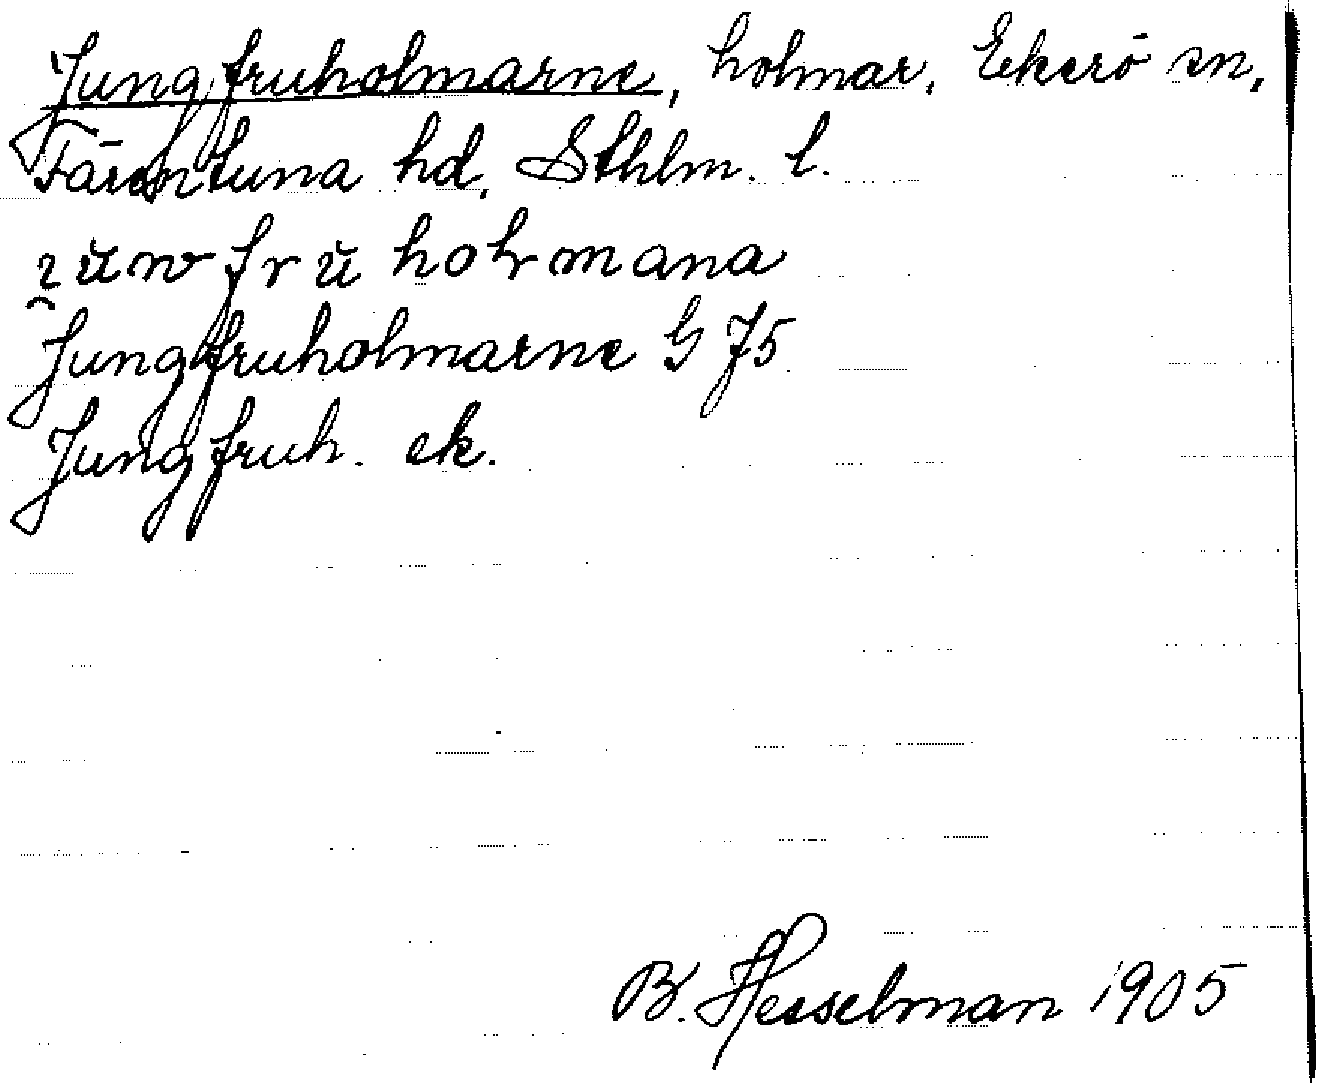 Jungfruholmarne, holmar, Ekerö sn,
Färentuna hd, Sthlm. l.
Jungfruholmarne G J5
Jungfruh. ek.
B. Hesselman 1905